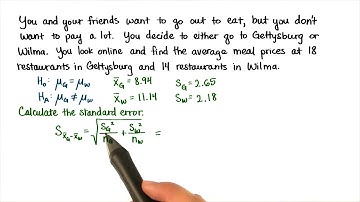 You and your friends want to go out to eat, but you don't
want to pay a lot. You decide to either go to Gettysburg or
Wilma. You look online and find the average meal prices at 18
restaurants in Gettysburg and 14 restaurants in Wilma.
H₀: μG = μW x̄G = 8.94 SG = 2.65
HA: μG ≠ μW x̄W = 11.14 SW = 2.18
Calculate the standard error.
Sx̄G-x̄W = √(SG²/nG + SW²/nW) =